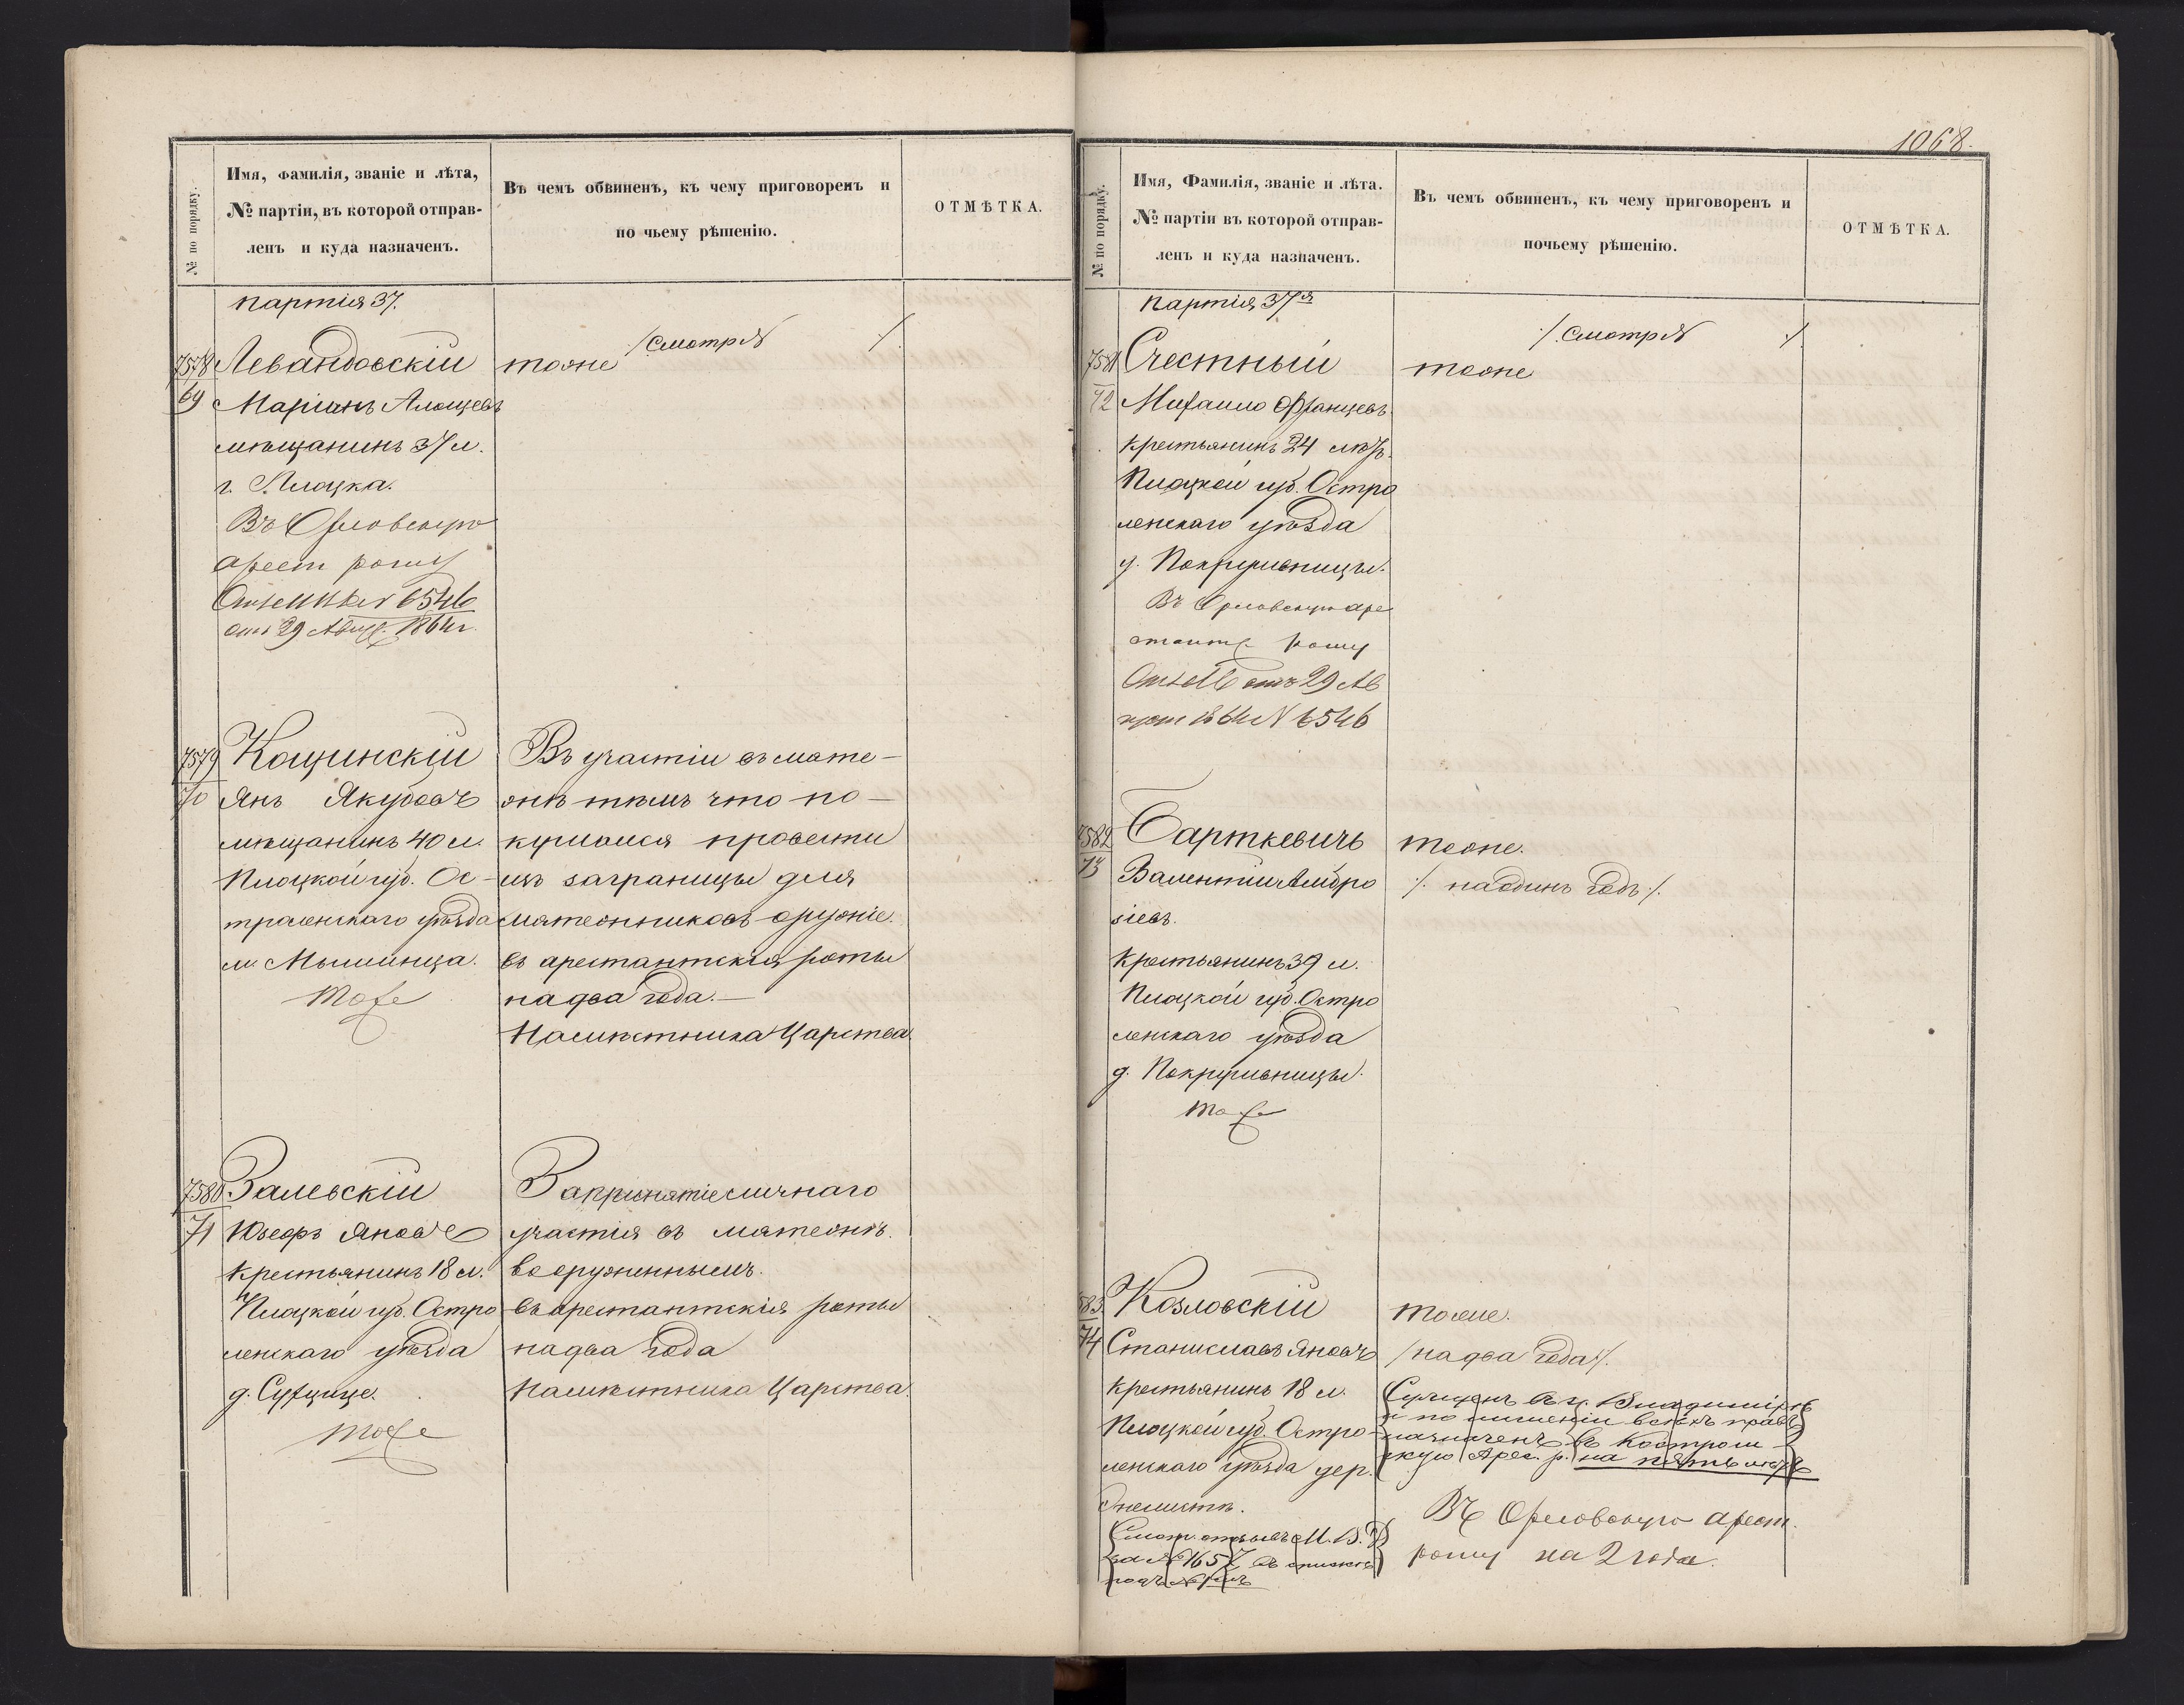 № по порядку.
Имя, фамилія, званіе и лѣта,
№ партіи, въ которой отправ-
ленъ и куда назначенъ.
Въ чемъ обвиненъ, къ чему приговоренъ и
по чьему рѣшенію.
ОТМѢТКА.
партія 37.
7578
69
Левандовскій
Маріанъ
мѣщанинъ 37 л.
г. Плоцка.
Въ Орловскую
арест роту
№ 6546
отъ 29 Август. 1864 г.
тоже
/ смотр №
/.
7579
70
Кощинскій
Янъ Якубовъ
мѣщанинъ 40 л.
Плоцкой губ. Ос-
троленскаго уѣзда
м. Мышинца.
тоже
Въ участіи въ мате-
жѣ тѣмъ что по-
купался провести
изъ заграницы для
мятежниковъ оружіе.
въ арестантскія роты
на два года.—
Намѣстника Царства
7580
71
Залевскій
Юзефъ Яновъ
крестьянинъ 18 л.
Плоцкой губ. Остро
ленскаго уѣзда
д.
тоже
За принятіе личнаго
участія въ мятежѣ.
вооруженнымъ.
въ арестантскія роты
на два года
Намѣстника Царства.
1068.
№ по порядку.
Имя, Фамилія, званіе и лѣта.
№ партіи въ которой отправ-
ленъ и куда назначенъ.
Въ чемъ обвиненъ, къ чему приговоренъ и
почьему рѣшенію.
ОТМѢТКА.
партія 37я
7581
72
Счестный
Михаило Францевъ
крестьянинъ 24 лѣтъ.
Плоцкой губ. Остро
ленскаго уѣзда
д.
Въ Орловскую аре
стантс роту
отъ 29 Ав
густ 1864 N 6546
./ смотр №
./
тоже
7582
73
Барткевичъ
Валентій Амбро
зіевъ.
Крестьянинъ 39 л.
Плоцкой губ. Остро
ленскаго уѣзда
д.
тоже
тоже.
./. на одинъ годъ ./.
583
74
Козловскій
Станиславъ Яновъ
крестьянинъ 18 л.
Плоцкой губ. Остро-
ленскаго уѣзда дер.
Смотр. отзывъ М. В. Д
за № 1657 въ спискѣ
подъ №
тоже.
/ на два года /.
Сужденъ въ г. Владимірѣ
и по лишеніи всѣхъ правъ
назначенъ въ Костром-
скую Арес. р. на пять лѣтъ
Въ Орловскую арест.
роту на 2 года.